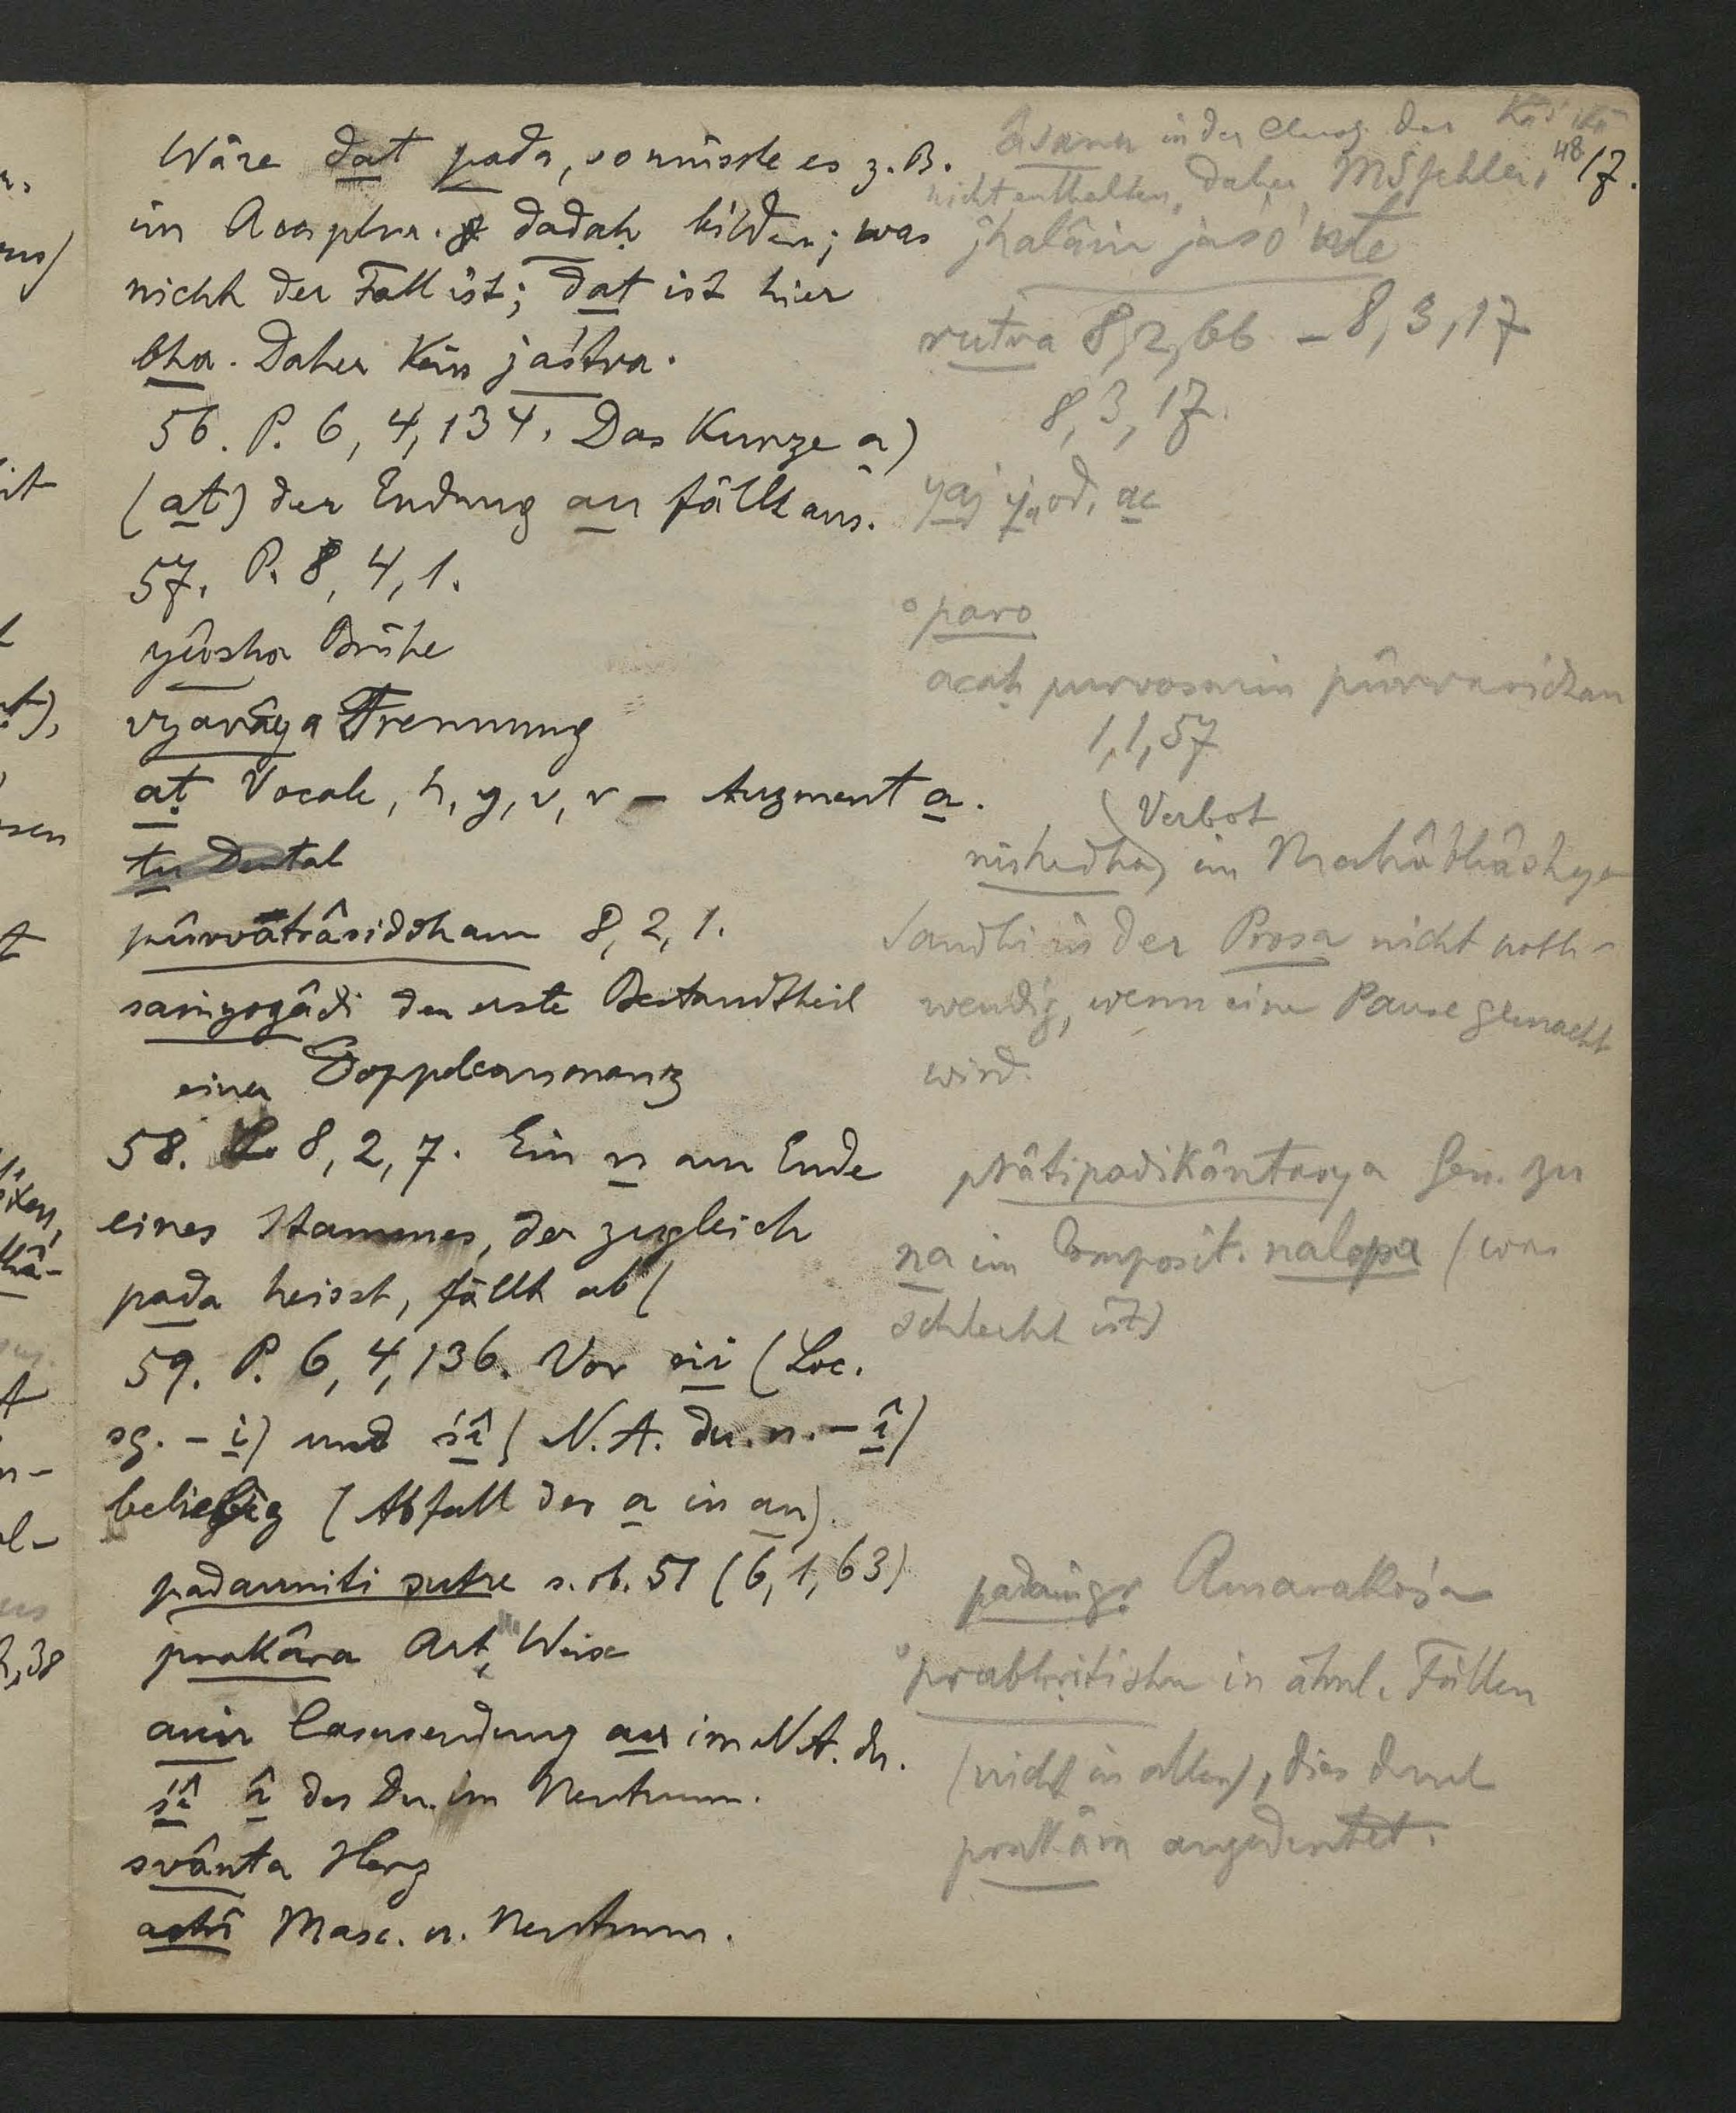 48
17.
Wäre dat pada, so müsste es z. B.
im Acc. plur. dadaḥ bilden; was
nicht der Fall ist; dat ist hier
bha. Daher kein jaśtva.
56. P. 6, 4, 134. Das Kurze a)
(at) der Endung an fällt aus.
57. P. 8, 4, 1.
yûsha Brühe
vyavâya Trennung
aṭ Vocale, h, y, v, r – Augment a.
tu Dental
pûrvatrâsiddham 8, 2, 1.
saṁyogâdi der erste Bestandtheil
einer Doppelconsonanz
58. 8, 2, 7. Ein n am Ende
eines Stammes, der zugleich
pada heisst, fällt ab (
59. P. 6, 4, 136. Vor ṅi (Loc.
sg. – i) und śî (N. A. du. n. – î)
beliebig (Abfall des a in an).
padanniti sutre s. ob. 51 (6, 1, 63)
prakâra Art, Weise
auṅ Casusendung au im N. A. du.
śî î des Du. im Neutrum.
svânta Herz
astrî Masc. u. Neutrum.
âsana in der Ausg. der Kâśikâ
nicht enthalten, daher MSfehler.
jhalâṁ jaśo 'nte
rutva 8, 2, 66 – 8, 3, 17
8, 3, 17.
yaj y, od. ac
°paro
acaḥ purvasmin pûrvavidhau
1, 1, 57
(Verbot
nishedha) im Mahâbhâshya
Sandhi in der Prosa nicht noth-
wendig, wenn eine Pause gemacht
wird.
prâtipadikântasya Gen. zu
na im Composit. nalopa (was
schlecht ist)
Amarakośa
°prabhṛitishu in ähnl. Fällen
(nicht in allen), dies durch
prakâra angedeutet.